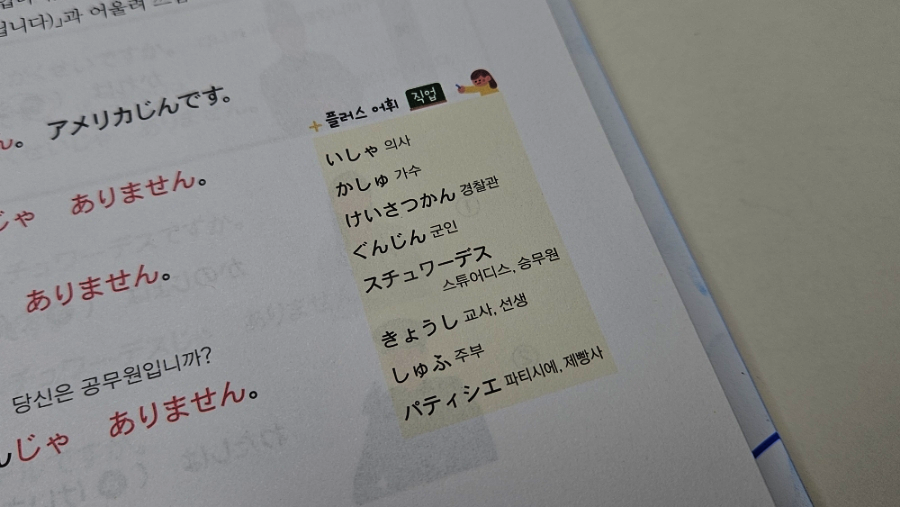 습니다)」과 어울려
アメリカじんです。
じゃ ありません。
ありません。
당신은 공무원입니까?
んじゃ ありません。
+ 플러스 어휘 직업
いしゃ 의사
かしゅ 가수
けいさつかん 경찰관
ぐんじん 군인
スチュワーデス
스튜어디스, 승무원
きょうし 교사, 선생
しゅふ 주부
パティシエ 파티시에, 제빵사